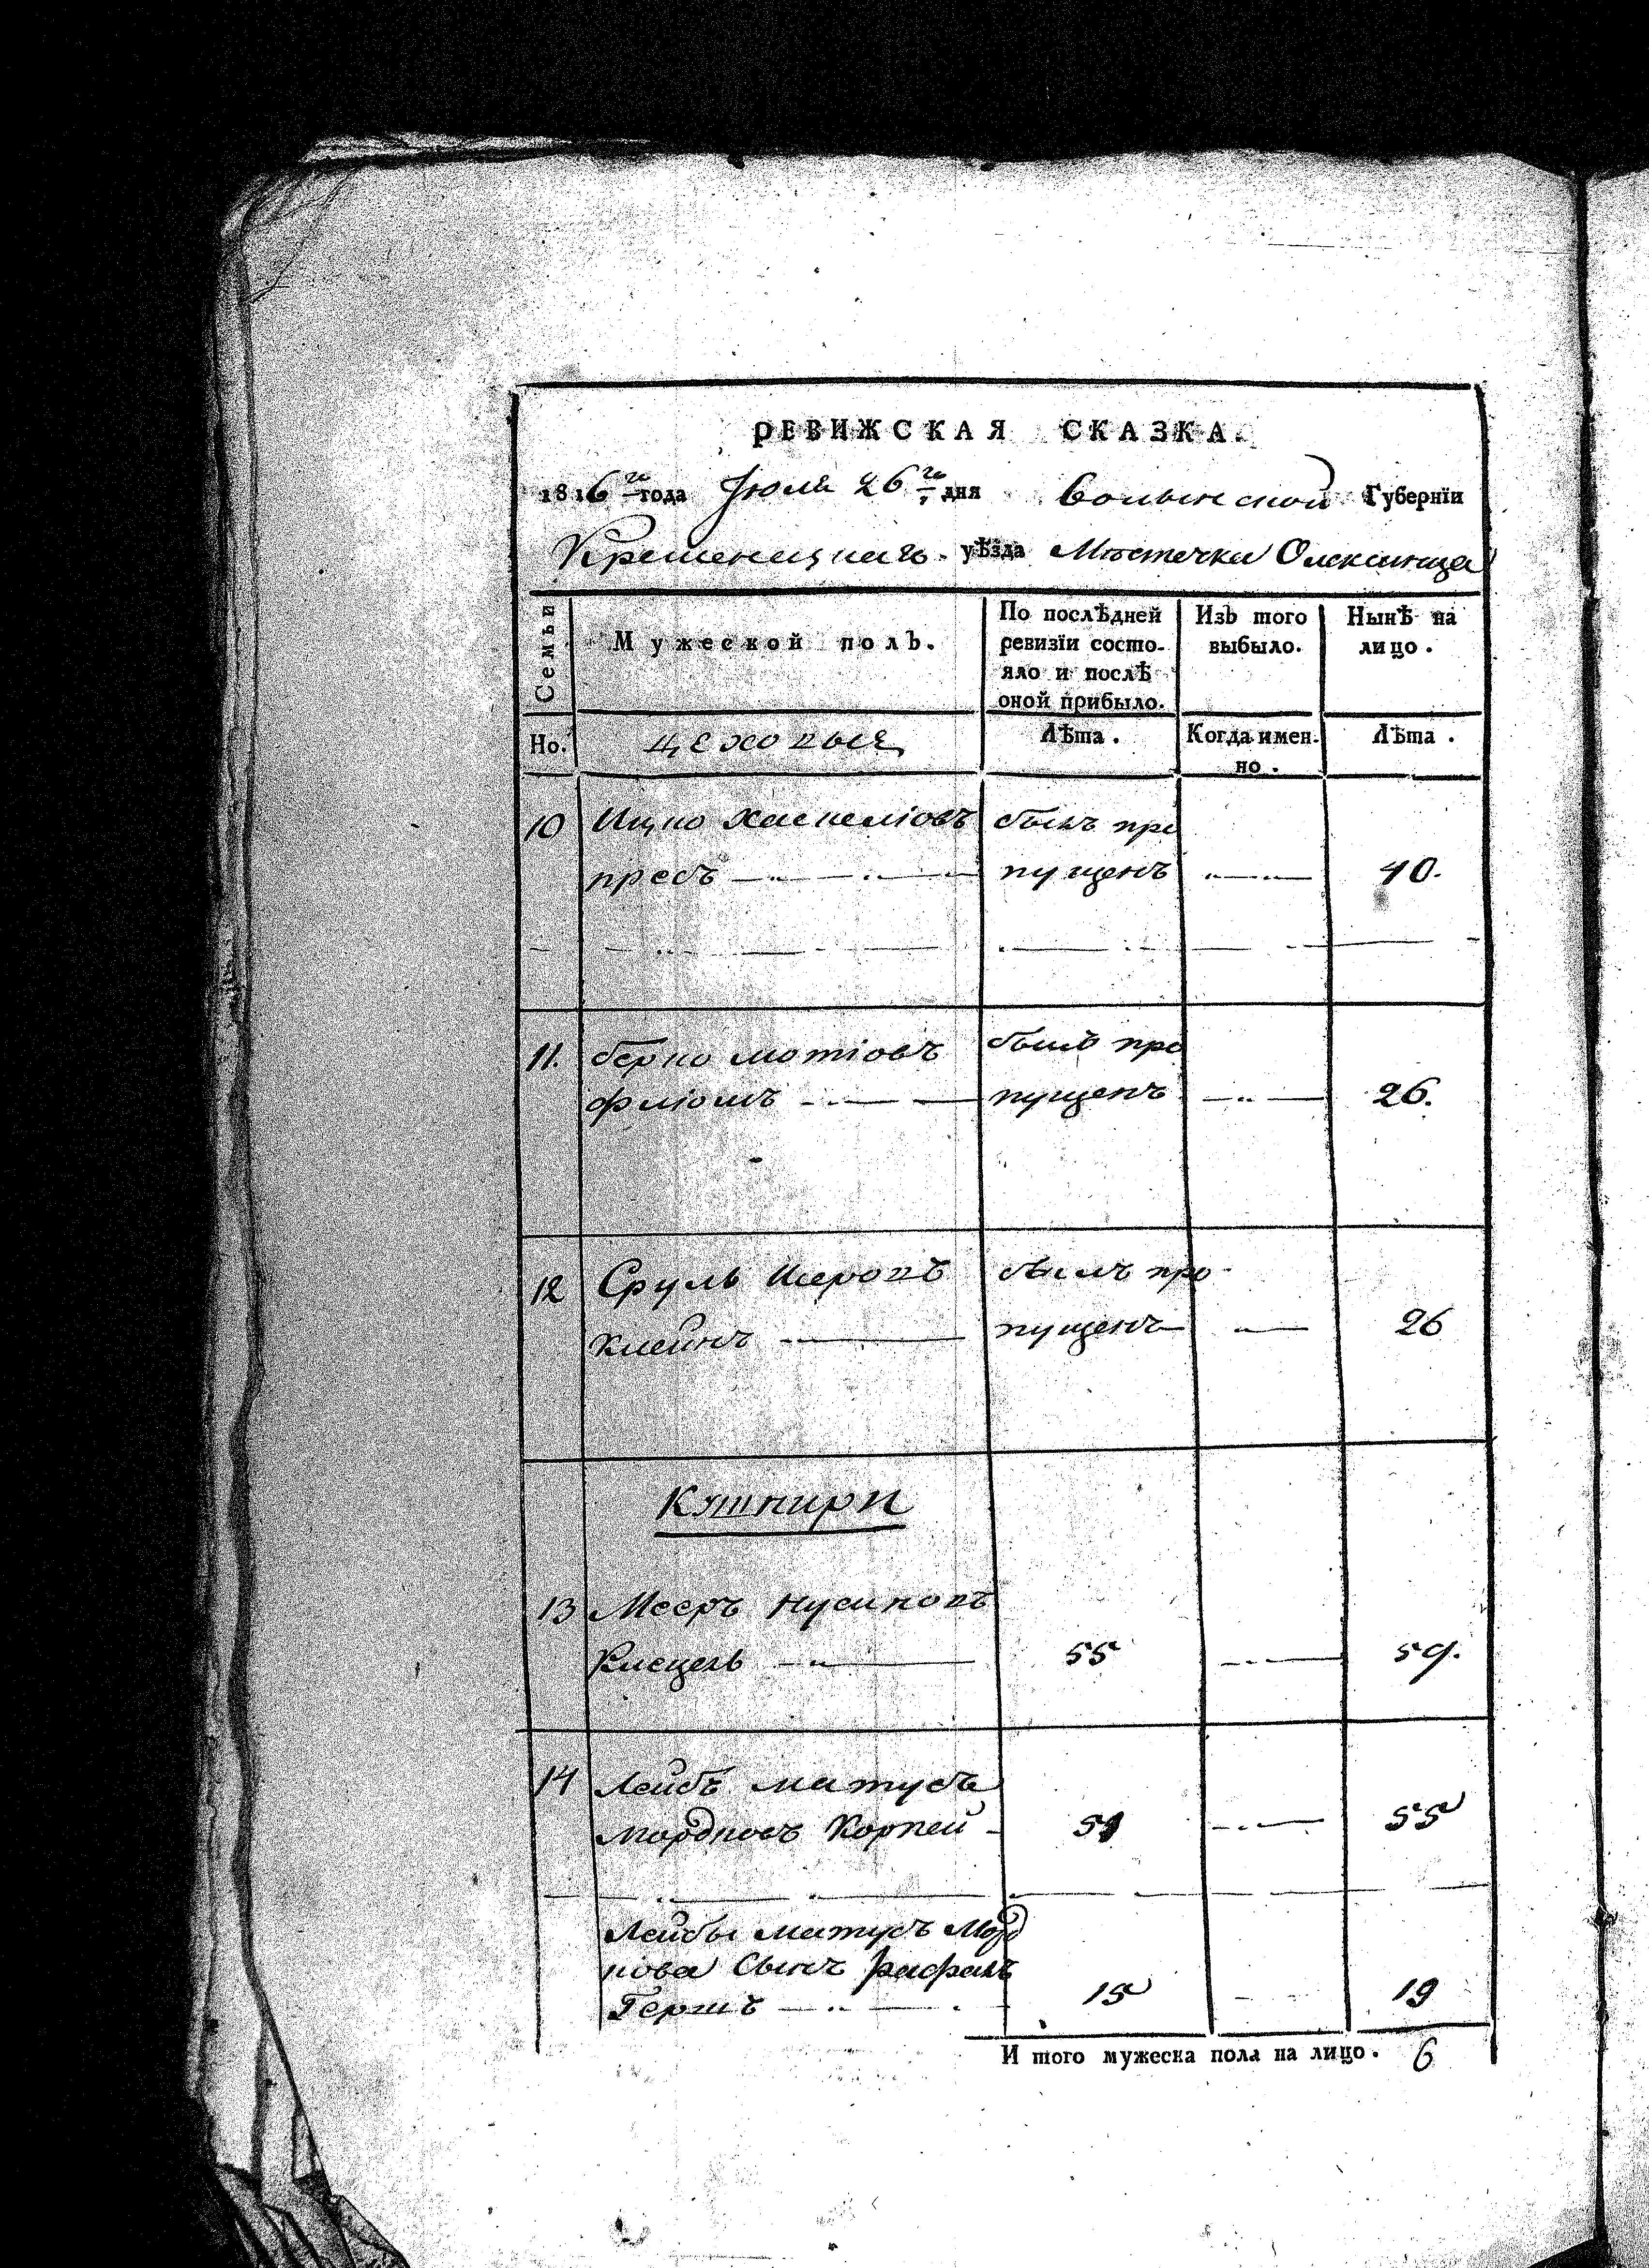 РЕВИЖСКАЯ СКАЗКА.
1816 го года Июля 26 го дня Волынской Губернїи
Кременецкаго уѣзда Мѣстечка Олексинца
Семьи
Мужеской полъ.
По послѣдней ревизїи состо-
яло и послѣ
оной прибыло.
Изъ того выбыло.
Нынѣ на лицо.
Но.
цеховые
Лѣта.
Когда имен-
но.
Лѣта.
10 Ицко Хаскелiовъ былъ про
пресъ пущенъ 40.
11. берко мотiовъ былъ про
флiомъ пущенъ 26.
12 Сруль Шеровъ былъ про-
клейнъ пущенъ 26
Кушнири
13 Мееръ Нусиновъ
55 59.
14 Лейбъ матусъ
мордковъ Корпей 51 55
Лейбы матусъ Морд
кова Сынъ рафалъ
Гершъ 15 19
И того мужеска пола на лицо. 6